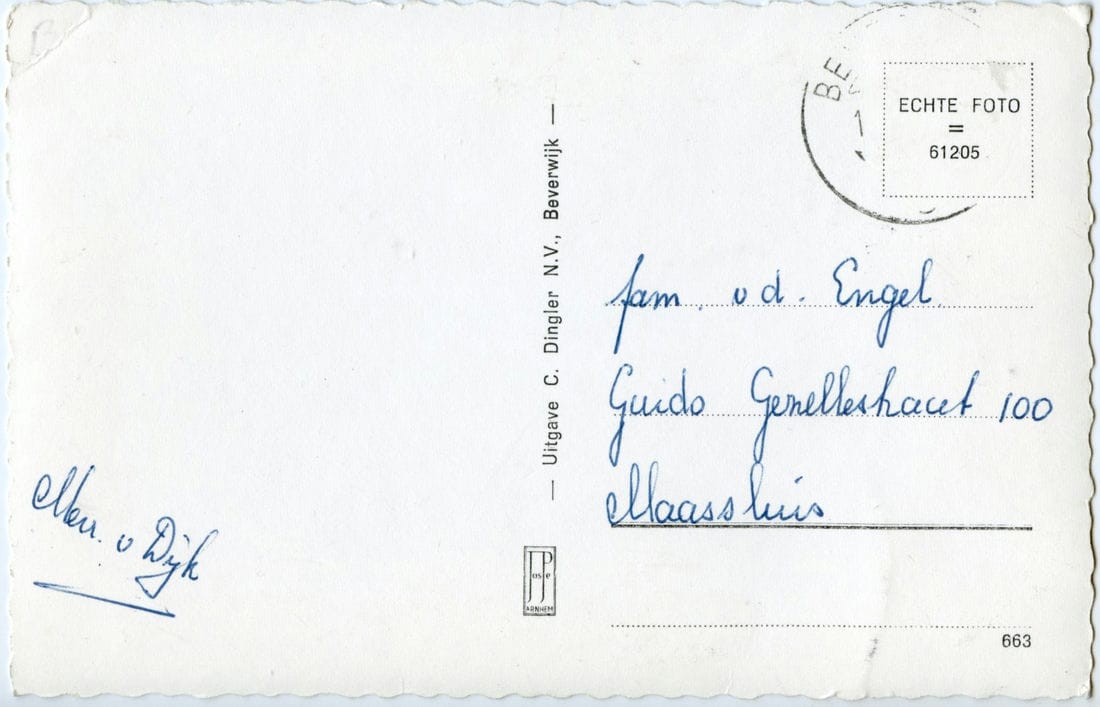 Mev. v Dijk
— Uitgave C. Dingler N.V., Beverwijk —
JosPé
ARNHEM
BE
ECHTE FOTO
=
61205
fam. v d. Engel.
Guido Gezellestraat 100
Maassluis
663